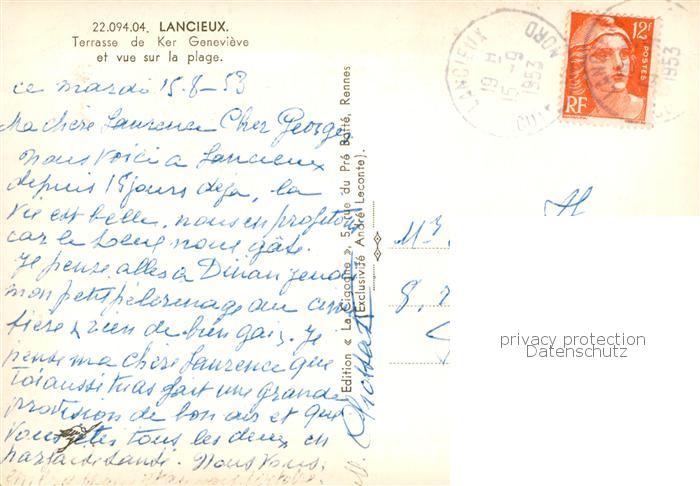 22.094.04. LANCIEUX.
Terrasse de Ker Geneviève
et vue sur la plage.
ce mardi 15-8-53
Ma chère Laurence Cher Georges
nous voici à Lancieux
depuis 15 jours déja, la
vie est belle, nous en profitons
car le soleil nous gâte.
Je pense aller à Dinan jeudi
mon petit pélerinage au cime
tière rien de bien gai. Je
pense ma chère Laurence que
toi aussi tu as fait une grande
provision de bon air et que
vous êtes tous les deux en
parfaite santé. Nous vous
Edition « La Cigogne », 5, rue du Pré Botté, Rennes
(Exclusivité André Leconte).
LANCIEUX
19 H
15-9
1953
NORD
12F
POSTES
RF
1953
M
8,
privacy protection
Datenschutz